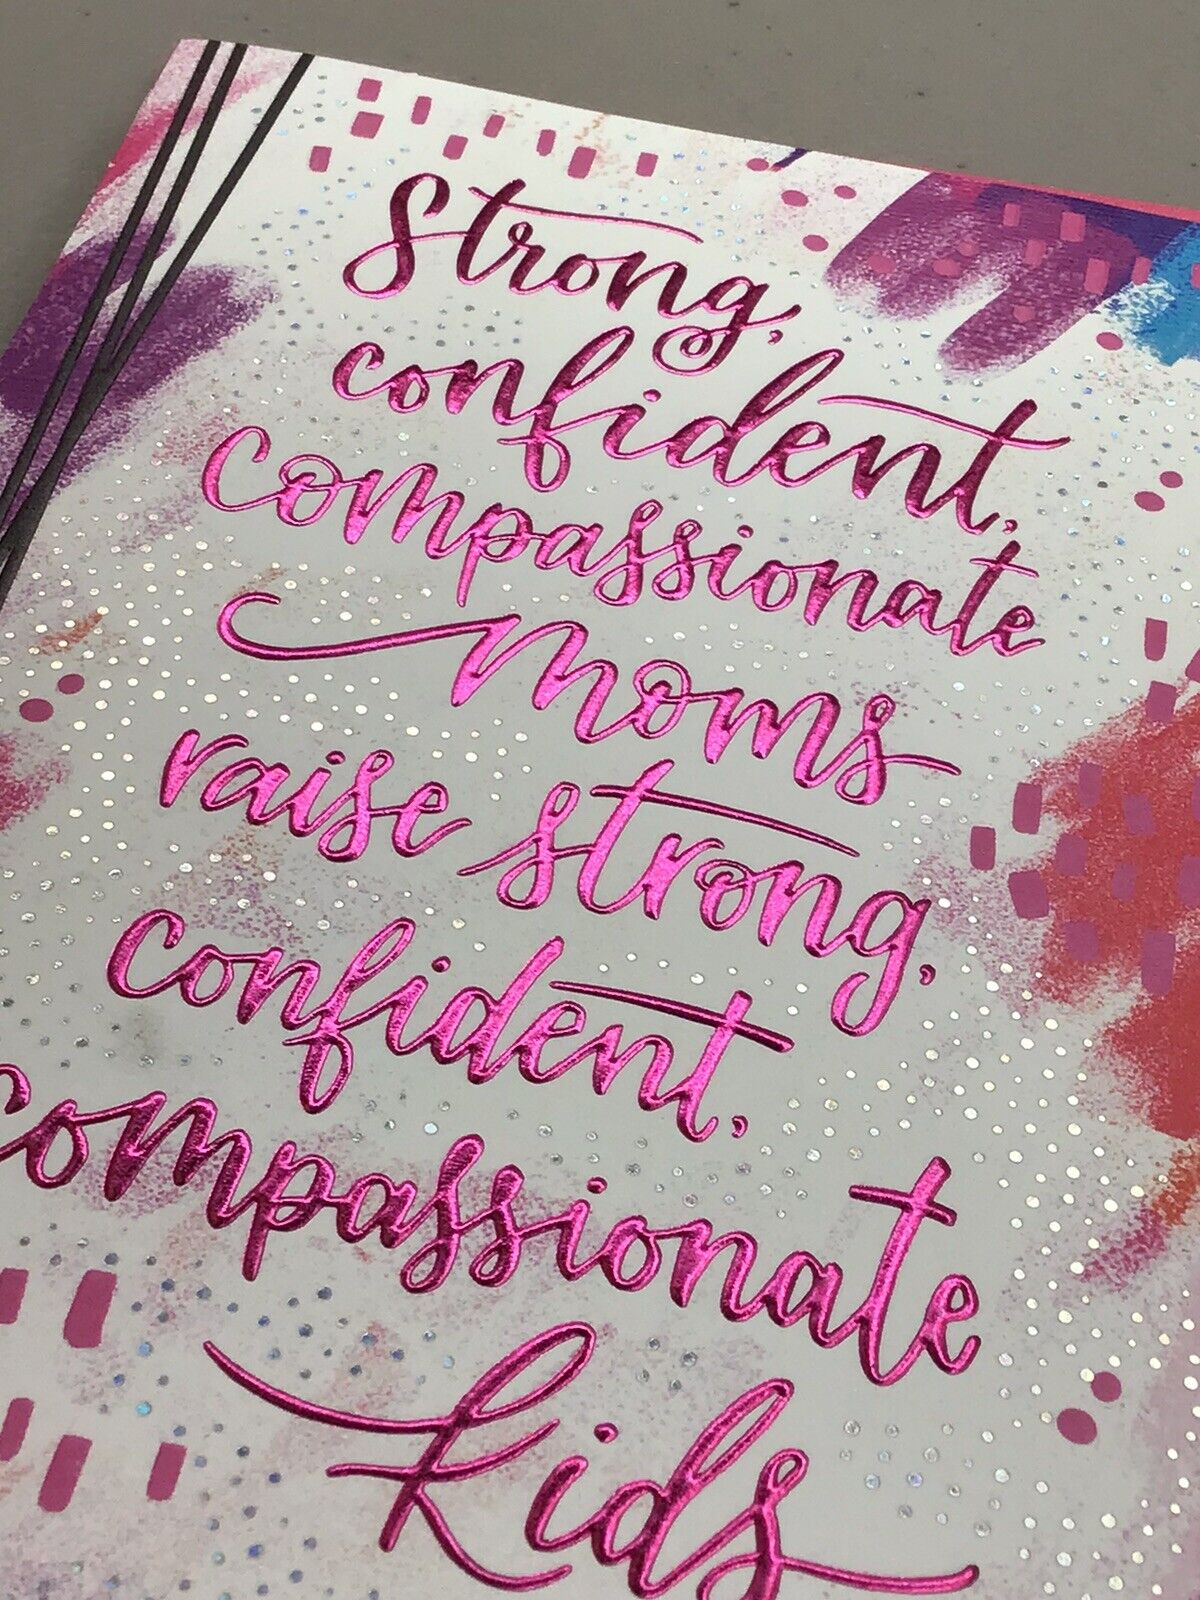 Strong,
confident,
compassionate
moms
raise strong,
confident,
compassionate
kids